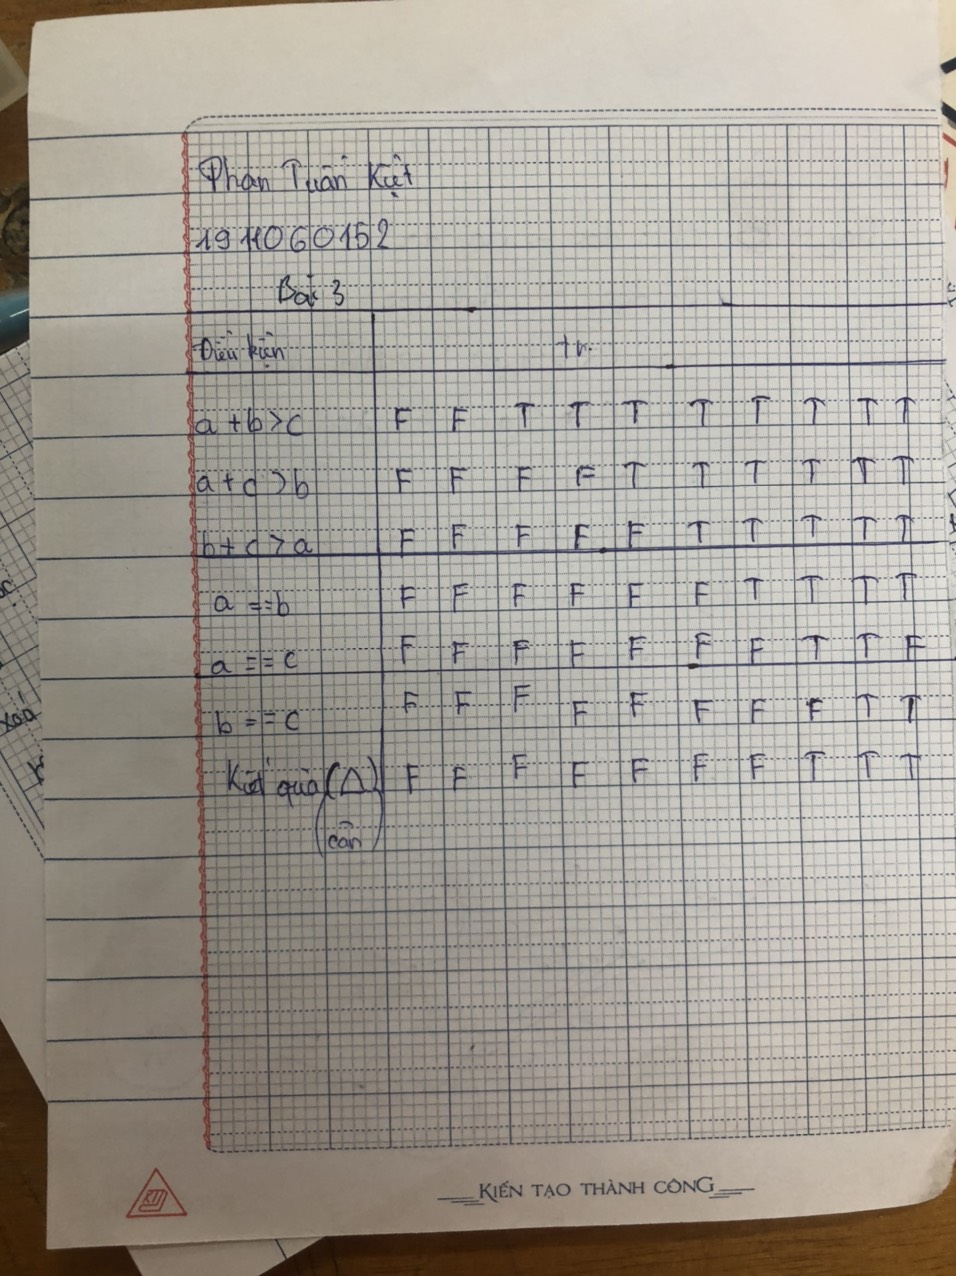 Phan Tuấn Kiệt
1911060152
Bài 3
Điều kiện
a + b > c F F T T T T T T T T
a + c > b F F F F T T T T T T
b + c > a F F F F F T T T T T
a == b F F F F F F T T T T
a == c F F F F F F F T T F
b == c F F F F F F F F T T
Kết quả (Δ cân) F F F F F F F T T T
KIẾN TẠO THÀNH CÔNG